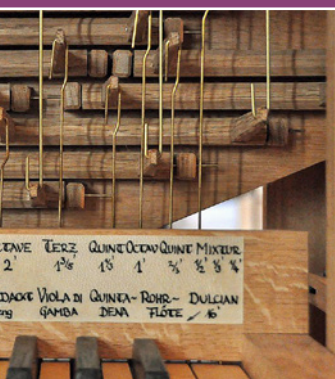 TAVE TERZ QUINT OCTAV QUINT MIXTUR
2' 1³/₅' 1⅓' 1' ⅔' ½' ⅓' ¼'
DACKT VIOLA DI QUINTA- ROHR- DULCIAN
GAMBA DENA FLÖTE 16'